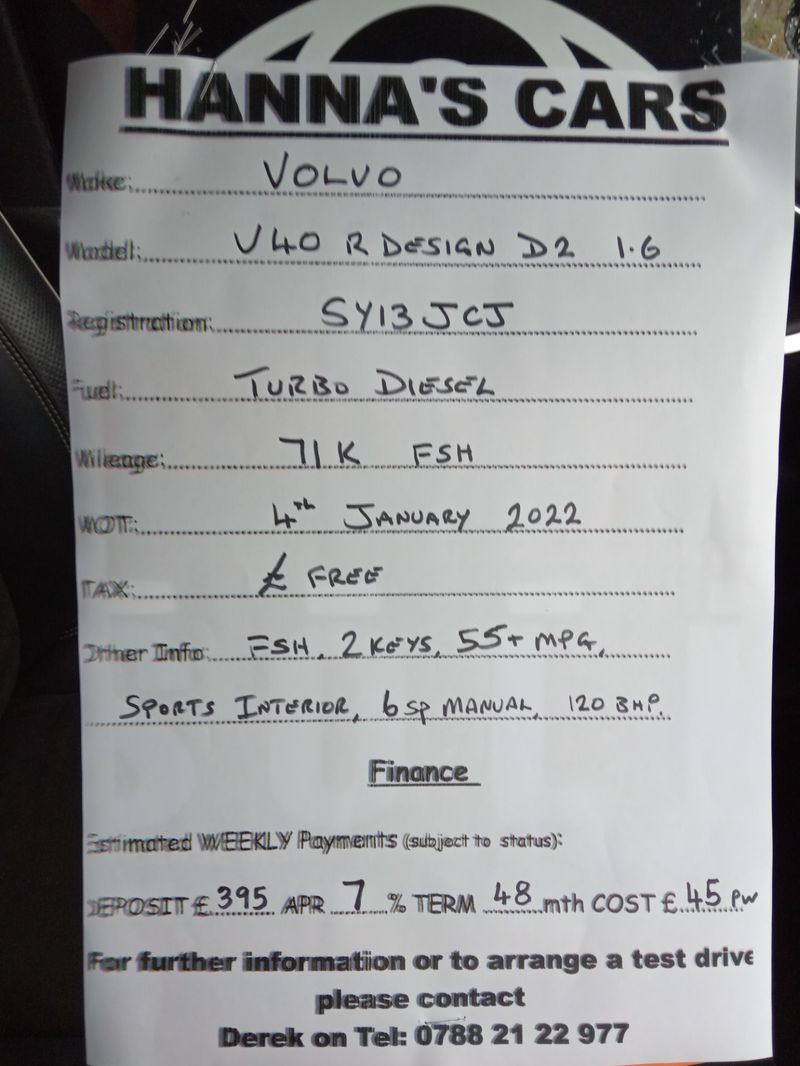 HANNA'S CARS
Make: VOLVO
Model: V40 R DESIGN D2 1.6
Registration: SY13 JCJ
Fuel: TURBO DIESEL
Mileage: 71K FSH
MOT: 4th JANUARY 2022
TAX: £ FREE
Other Info: FSH, 2 KEYS, 55+ MPG,
SPORTS INTERIOR, 6 SP MANUAL, 120 BHP.
Finance
Estimated WEEKLY Payments (subject to status):
DEPOSIT £ 395 APR 7 % TERM 48 mth COST £ 45 PW
For further information or to arrange a test drive
please contact
Derek on Tel: 0788 21 22 977